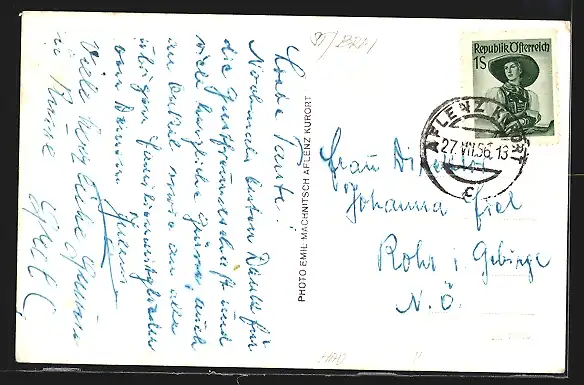 Liebe Tante!
Nochmals besten Dank für
die Gastfreundschaft und
viele herzliche Grüsse, auch
an Onkel sowie an alle
übrigen Familienmitglieder
von Deinem
Viele
in Kürze
PHOTO EMIL MACHNITSCH AFLENZ KURORT
Republik Österreich
1S
AFLENZ KURORT
27.VII.56.13
c
Frau Direktor
Johanna
Rohr i Gebirge
N.Ö.